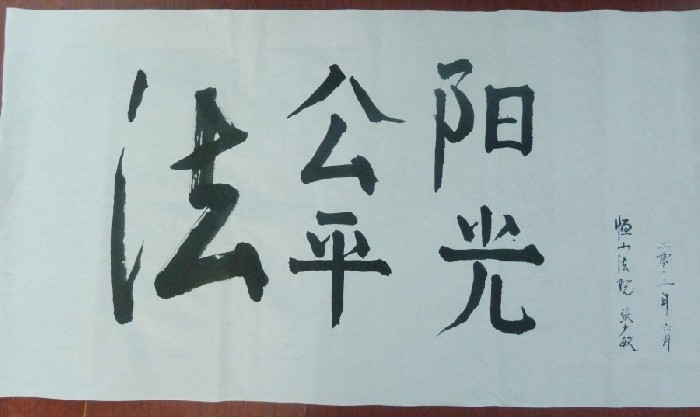 阳光
公平
法
二零一一年六月
恒山法院 张少敏